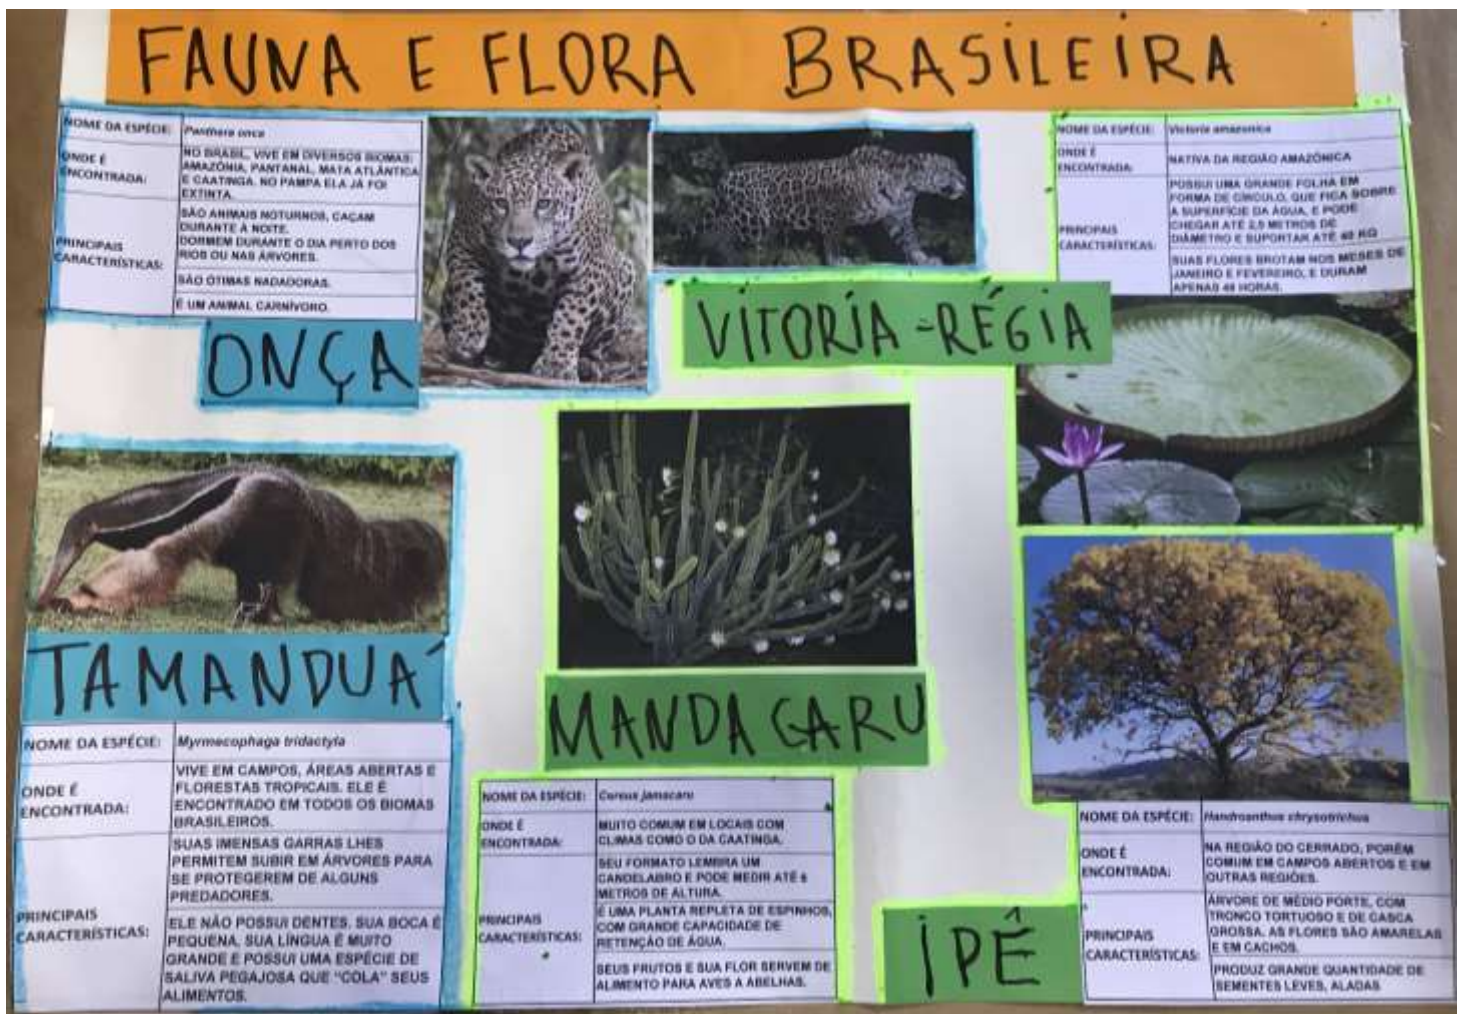 FAUNA E FLORA BRASILEIRA
NOME DA ESPÉCIE: Panthera onca
ONDE É ENCONTRADA:
NO BRASIL, VIVE EM DIVERSOS BIOMAS:
AMAZÔNIA, PANTANAL, MATA ATLÂNTICA
E CAATINGA. NO PAMPA ELA JÁ FOI
EXTINTA.
PRINCIPAIS CARACTERÍSTICAS:
SÃO ANIMAIS NOTURNOS, CAÇAM
DURANTE À NOITE.
DORMEM DURANTE O DIA PERTO DOS
RIOS OU NAS ÁRVORES.
SÃO ÓTIMAS NADADORAS.
É UM ANIMAL CARNÍVORO.
ONÇA
NOME DA ESPÉCIE: Victoria amazonica
ONDE É ENCONTRADA:
NATIVA DA REGIÃO AMAZÔNICA
PRINCIPAIS CARACTERÍSTICAS:
POSSUI UMA GRANDE FOLHA EM
FORMA DE CÍRCULO, QUE FICA SOBRE
A SUPERFÍCIE DA ÁGUA, E PODE
CHEGAR ATÉ 2,5 METROS DE
DIÂMETRO E SUPORTAR ATÉ 40 KG
SUAS FLORES BROTAM NOS MESES DE
JANEIRO E FEVEREIRO, E DURAM
APENAS 48 HORAS.
VITORÍA-RÉGIA
TAMANDUÁ
NOME DA ESPÉCIE: Myrmecophaga tridactyla
ONDE É ENCONTRADA:
VIVE EM CAMPOS, ÁREAS ABERTAS E
FLORESTAS TROPICAIS. ELE É
ENCONTRADO EM TODOS OS BIOMAS
BRASILEIROS.
PRINCIPAIS CARACTERÍSTICAS:
SUAS IMENSAS GARRAS LHES
PERMITEM SUBIR EM ÁRVORES PARA
SE PROTEGEREM DE ALGUNS
PREDADORES.
ELE NÃO POSSUI DENTES, SUA BOCA É
PEQUENA, SUA LÍNGUA É MUITO
GRANDE E POSSUI UMA ESPÉCIE DE
SALIVA PEGAJOSA QUE "COLA" SEUS
ALIMENTOS.
MANDACARU
NOME DA ESPÉCIE: Cereus jamacaru
ONDE É ENCONTRADA:
MUITO COMUM EM LOCAIS COM
CLIMAS COMO O DA CAATINGA.
PRINCIPAIS CARACTERÍSTICAS:
SEU FORMATO LEMBRA UM
CANDELABRO E PODE MEDIR ATÉ 6
METROS DE ALTURA.
É UMA PLANTA REPLETA DE ESPINHOS,
COM GRANDE CAPACIDADE DE
RETENÇÃO DE ÁGUA.
SEUS FRUTOS E SUA FLOR SERVEM DE
ALIMENTO PARA AVES A ABELHAS.
NOME DA ESPÉCIE: Handroanthus chrysotrichus
ONDE É ENCONTRADA:
NA REGIÃO DO CERRADO, PORÉM
COMUM EM CAMPOS ABERTOS E EM
OUTRAS REGIÕES.
PRINCIPAIS CARACTERÍSTICAS:
ÁRVORE DE MÉDIO PORTE, COM
TRONCO TORTUOSO E DE CASCA
GROSSA. AS FLORES SÃO AMARELAS
E EM CACHOS.
PRODUZ GRANDE QUANTIDADE DE
SEMENTES LEVES, ALADAS
IPÊ